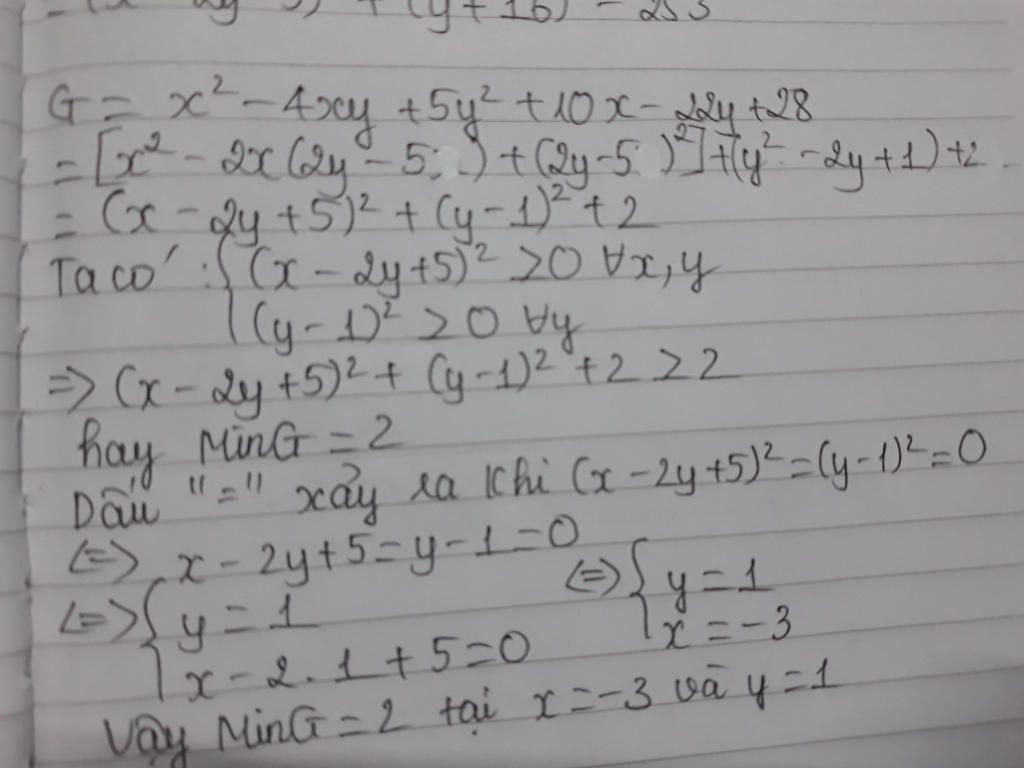 = (x - 2y + 5)² + (y + 16)² - 253
G = x² - 4xy + 5y² + 10x - 22y + 28
= [x² - 2x(2y - 5) + (2y - 5)²] + (y² - 2y + 1) + 2
= (x - 2y + 5)² + (y - 1)² + 2
Ta có: { (x - 2y + 5)² ≥ 0 ∀x, y
(y - 1)² ≥ 0 ∀y
=> (x - 2y + 5)² + (y - 1)² + 2 ≥ 2
hay MinG = 2
Dấu "=" xảy ra khi (x - 2y + 5)² = (y - 1)² = 0
<=> x - 2y + 5 = y - 1 = 0
<=> { y = 1 <=> { y = 1
x - 2.1 + 5 = 0 x = -3
Vậy MinG = 2 tại x = -3 và y = 1